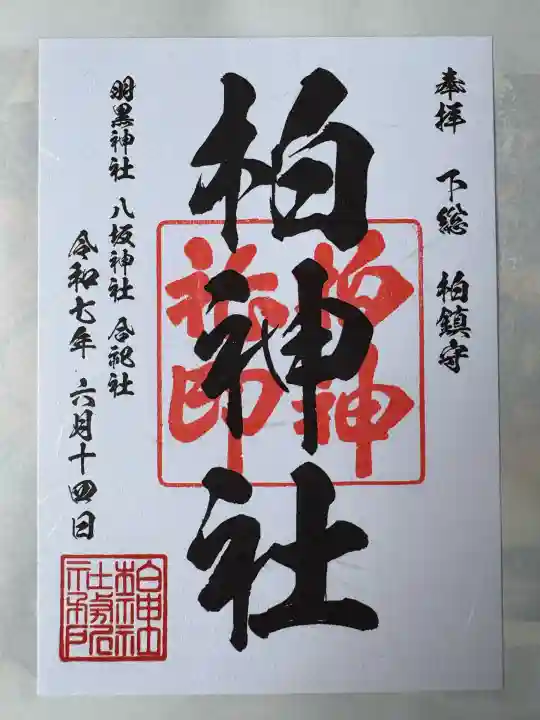 奉拝 下総 柏鎮守
柏神社
羽黒神社 八坂神社 合祀社
令和七年 六月十四日
柏神
社印